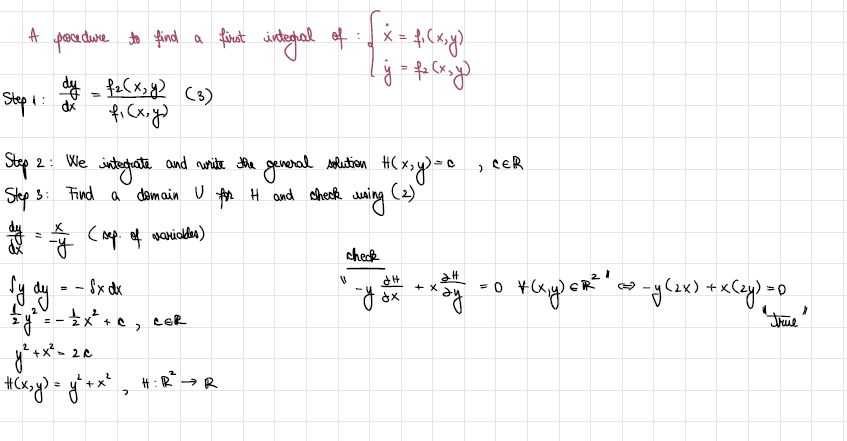 A procedure to find a first integral of : { ẋ = f₁(x,y)
ẏ = f₂(x,y)
Step 1: dy/dx = f₂(x,y)/f₁(x,y) (3)
Step 2: We integrate and write the general solution H(x,y)=c , c∈ℝ
Step 3: Find a domain U for H and check using (2)
dy/dx = x/-y (sep. of variables)
∫y dy = -∫x dx
1/2 y² = -1/2 x² + c , c∈ℝ
y² + x² = 2c
H(x,y) = y² + x² , H: ℝ² → ℝ
check
" -y ∂H/∂x + x ∂H/∂y = 0 ∀(x,y)∈ℝ² " ⇔ -y(2x) + x(2y) = 0
"true"